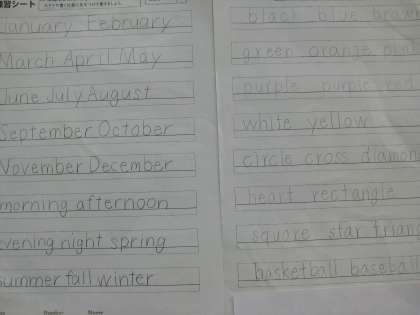 練習シート
January February
March April May
June July August
September October
November December
morning afternoon
evening night spring
summer fall winter
black blue brown
green orange pink
purple purple red
white yellow
circle cross diamond
heart rectangle
square star triangle
basketball baseball
Name